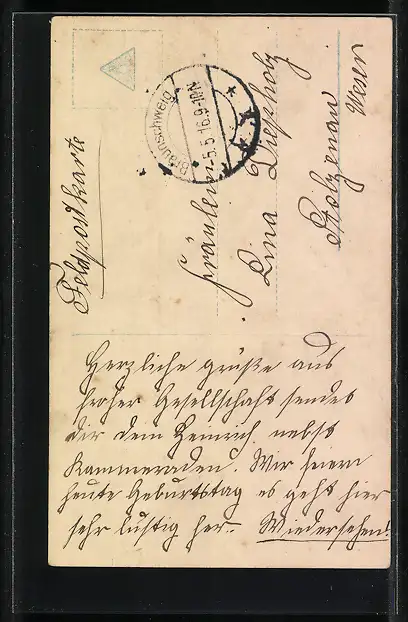 Feldpostkarte
Braunschweig
5.5.16.9-10N
Fräulein
Lina Diepholz
Stolzenau
Weser
Herzliche grüße aus
froher Gesellschaft sendet
dir dein Heinrich nebst
Kammeraden. Wir feiern
heute Geburtstag es geht hier
sehr lustig her. Wiedersehen!